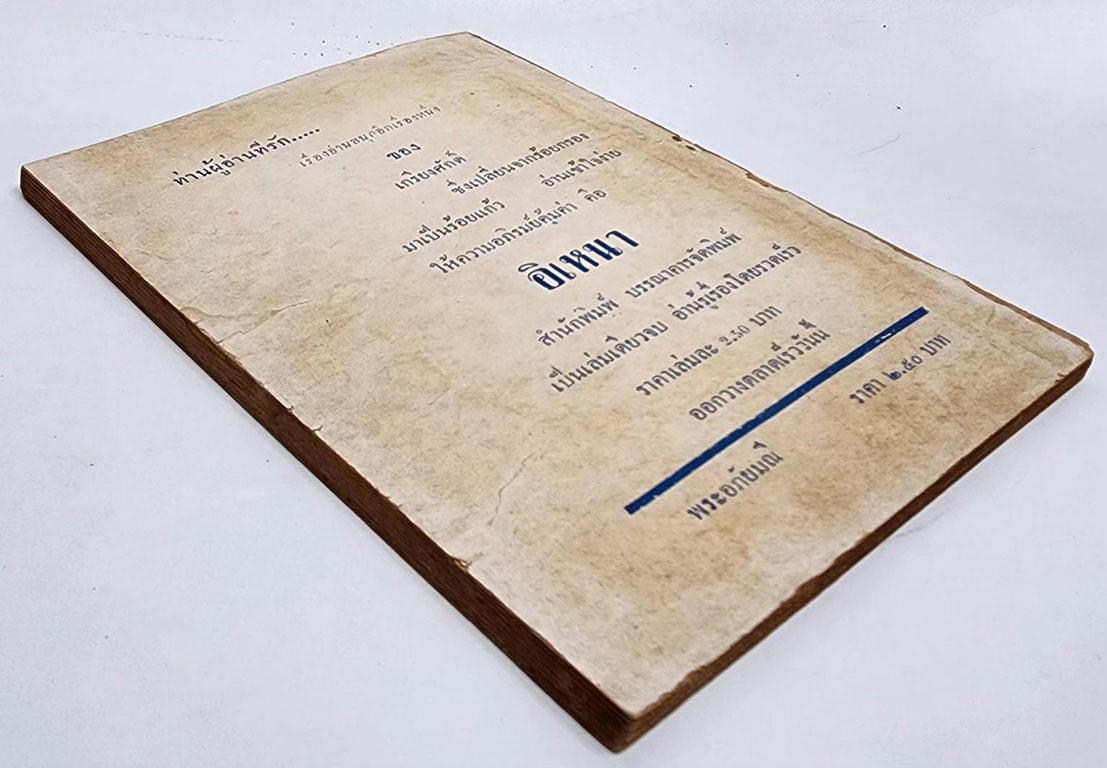 ท่านผู้อ่านที่รัก.....
เรื่องอ่านสนุกอีกเรื่องหนึ่ง
ของ
เกรียงศักดิ์
ซึ่งเปลี่ยนจากร้อยกรอง
มาเป็นร้อยแก้ว อ่านเข้าใจง่าย
ให้ความอภิรมย์คุ้มค่า คือ
อิเหนา
สำนักพิมพ์ บรรณาคารจัดพิมพ์
เป็นเล่มเดียวจบ อ่านรู้เรื่องโดยรวดเร็ว
ราคาเล่มละ 2.50 บาท
ออกวางตลาดเร็ววันนี้
พระอภัยมณี ราคา ๒.๕๐ บาท